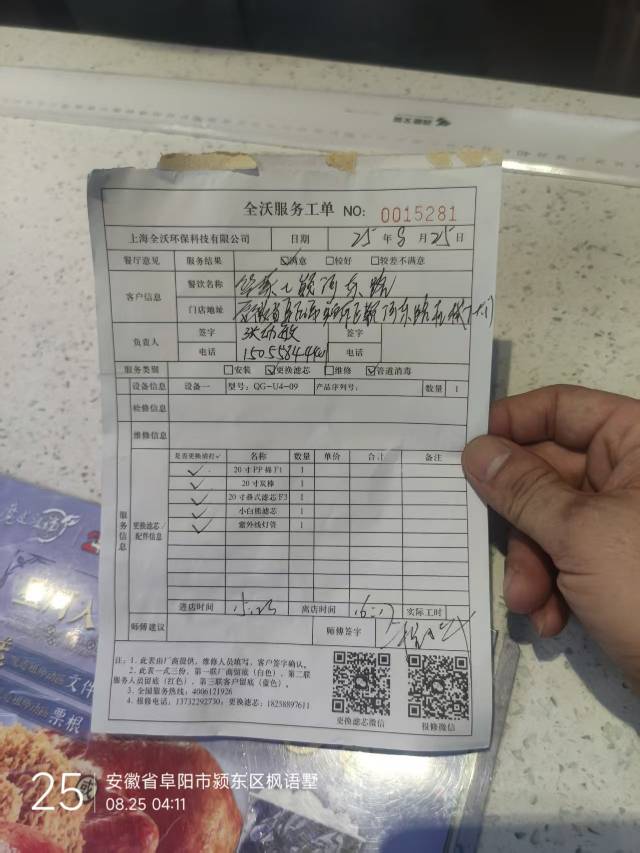 全沃服务工单 NO: 0015281
上海全沃环保科技有限公司 日期 25 年 8 月 25 日
餐厅意见 服务结果 ☑满意 □较好 □较差不满意
客户信息 餐饮名称
门店地址
负责人 签字 签字
电话 电话
服务类别 □安装 ☑更换滤芯 □维修 ☑管道消毒
设备信息 设备一 型号: QG-U4-09 产品序列号: 数量 1
检修信息
维修信息
服务信息 更换滤芯/配件信息
是否更换请打✓ 名称 数量 单价 合计 备注
✓ 20寸PP棉F1 1
✓ 20寸炭棒 1
✓ 20寸叠式滤芯F3 1
✓ 小白熊滤芯 1
✓ 紫外线灯管 1
进店时间 离店时间 实际工时
师傅建议 师傅签字
注: 1. 此表由厂商提供, 维修人员填写, 客户签字确认。
2. 此表一式三份, 第一联厂商留底 (白色), 第二联
服务人员留底 (红色), 第三联客户留底 (蓝色)。
3. 全国服务热线: 4006121926
4. 报修电话: 13732292730; 更换滤芯: 18258897611
更换滤芯微信 报修微信
文件
票根
25
安徽省阜阳市颍东区枫语墅
08.25 04:11